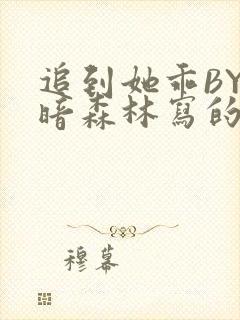 追到她乖BY
暗森林寫的
穆幕